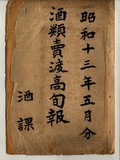 昭和十三年五月分
酒類賣渡高旬報
酒課